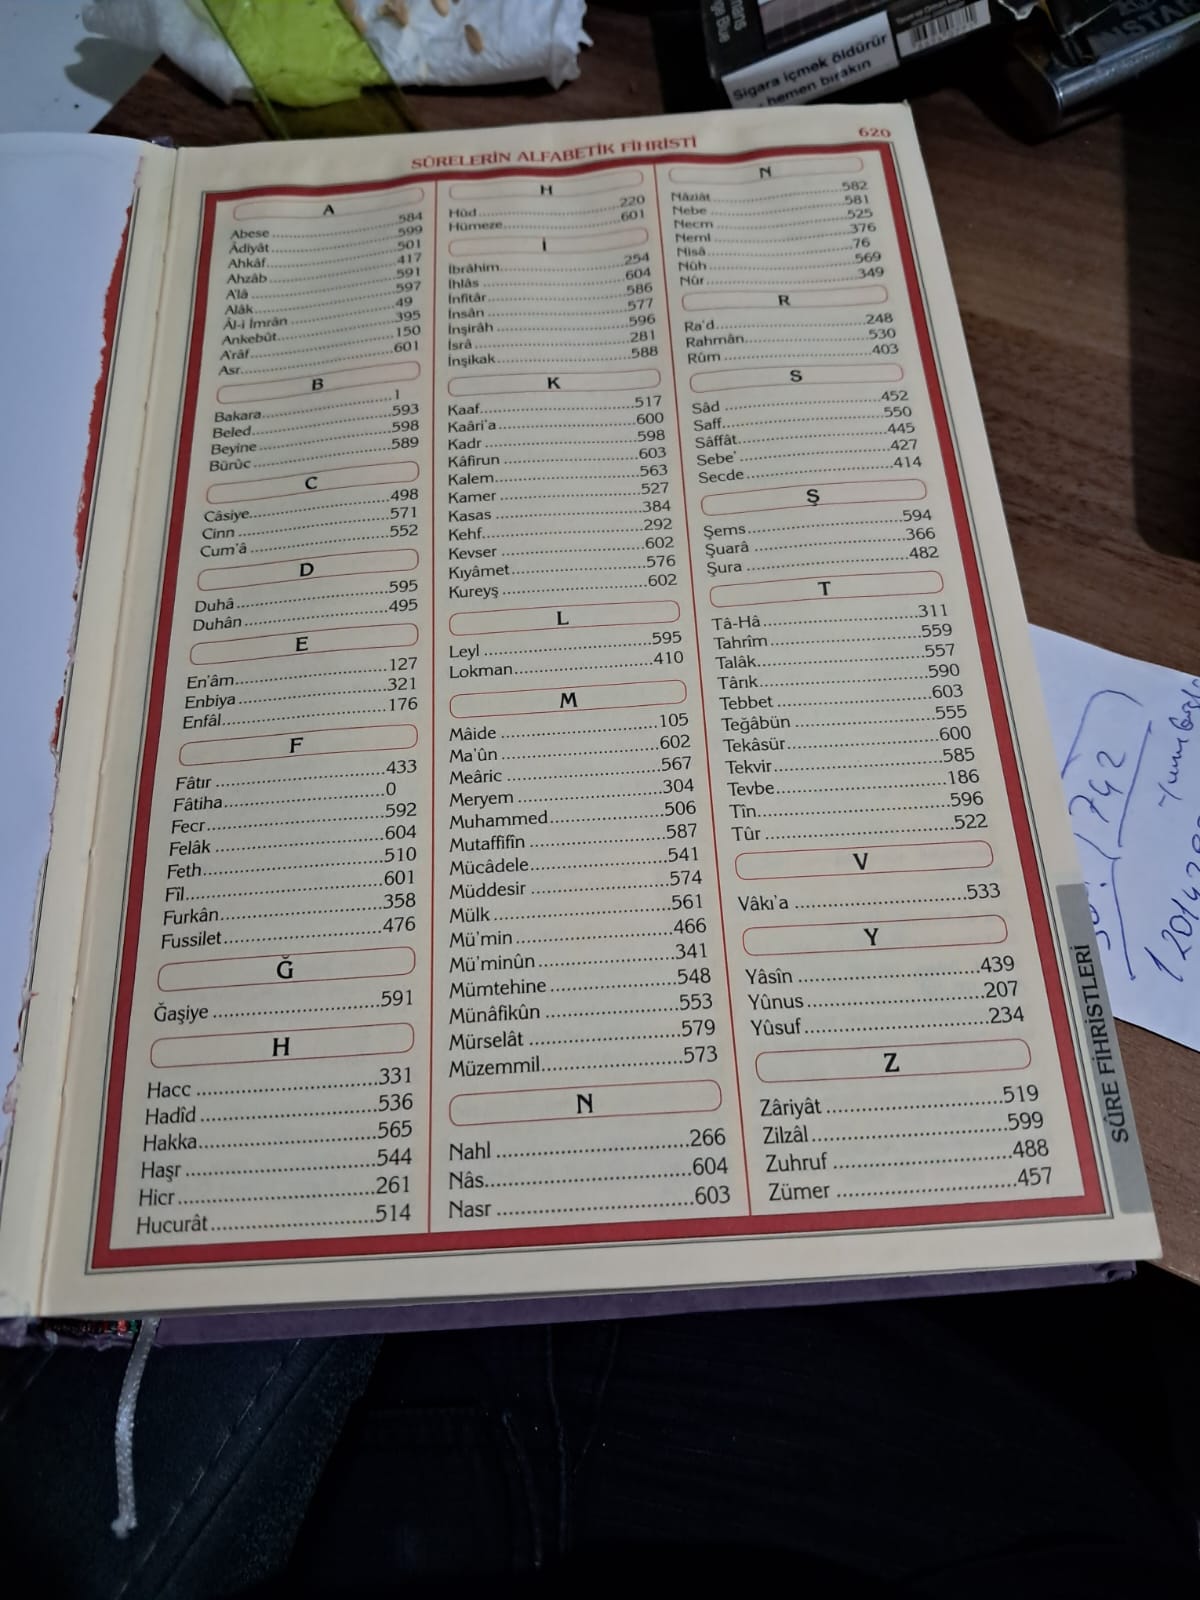 Sigara içmek öldürür
hemen bırakın
620
SÛRELERİN ALFABETİK FİHRİSTİ
A
Abese 584
Âdiyât 599
Ahkâf 501
Ahzâb 417
A'lâ 591
Alâk 597
Âl-i İmrân 49
Ankebût 395
A'râf 150
Asr 601
B
Bakara 1
Beled 593
Beyine 598
Bürûc 589
C
Câsiye 498
Cinn 571
Cum'â 552
D
Duhâ 595
Duhân 495
E
En'âm 127
Enbiya 321
Enfâl 176
F
Fâtır 433
Fâtiha 0
Fecr 592
Felâk 604
Feth 510
Fîl 601
Furkân 358
Fussilet 476
Ğ
Ğaşiye 591
H
Hacc 331
Hadîd 536
Hakka 565
Haşr 544
Hicr 261
Hucurât 514
H
Hûd 220
Hümeze 601
İ
İbrâhim 254
İhlâs 604
İnfitâr 586
İnsân 577
İnşirâh 596
İsrâ 281
İnşikak 588
K
Kaaf 517
Kaâri'a 600
Kadr 598
Kâfirun 603
Kalem 563
Kamer 527
Kasas 384
Kehf 292
Kevser 602
Kıyâmet 576
Kureyş 602
L
Leyl 595
Lokman 410
M
Mâide 105
Ma'ûn 602
Meâric 567
Meryem 304
Muhammed 506
Mutaffifîn 587
Mücâdele 541
Müddesir 574
Mülk 561
Mü'min 466
Mü'minûn 341
Mümtehine 548
Münâfikûn 553
Mürselât 579
Müzemmil 573
N
Nahl 266
Nâs 604
Nasr 603
N
Nâziât 582
Nebe 581
Necm 525
Neml 376
Nisâ 76
Nûh 569
Nûr 349
R
Ra'd 248
Rahmân 530
Rûm 403
S
Sâd 452
Saff 550
Sâffât 445
Sebe' 427
Secde 414
Ş
Şems 594
Şuarâ 366
Şura 482
T
Tâ-Hâ 311
Tahrîm 559
Talâk 557
Târık 590
Tebbet 603
Teğâbün 555
Tekâsür 600
Tekvir 585
Tevbe 186
Tîn 596
Tûr 522
V
Vâkı'a 533
Y
Yâsîn 439
Yûnus 207
Yûsuf 234
Z
Zâriyât 519
Zilzâl 599
Zuhruf 488
Zümer 457
SÛRE FİHRİSTLERİ